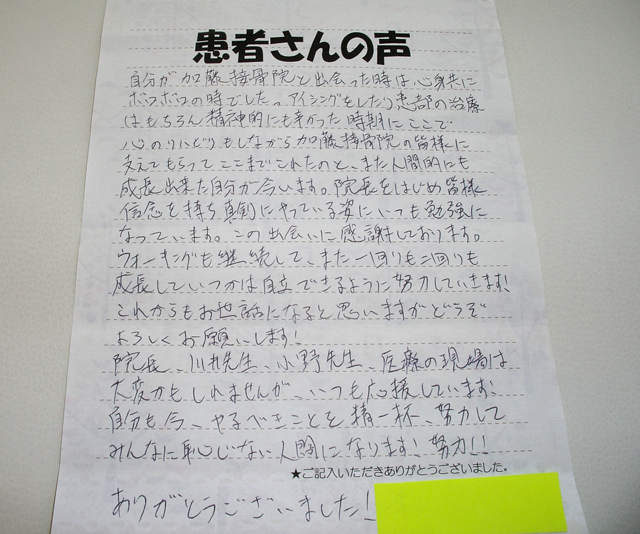 患者さんの声
自分が加藤接骨院と出会った時は心身共に
ボロボロの時でした。アイシングをしたり患部の治療
はもちろん精神的にも辛かった時期にここで
心のリハビリもしながら加藤接骨院の皆様に
支えてもらってここまでこれたのと、また人間的にも
成長出来た自分が今います。院長をはじめ皆様
信念を持ち真剣にやっている姿にいつも勉強に
なっています。この出会いに感謝しております。
ウォーキングも継続して、また一回りも二回りも
成長していつかは自立できるように努力していきます!
これからもお世話になると思いますがどうぞ
よろしくお願いします!
院長、川井先生、小野先生、医療の現場は
大変かもしれませんが、いつも応援しています!
自分も今、やるべきことを精一杯、努力して
みんなに恥じない人間になります!努力!!
★ご記入いただきありがとうございました。
ありがとうございました!